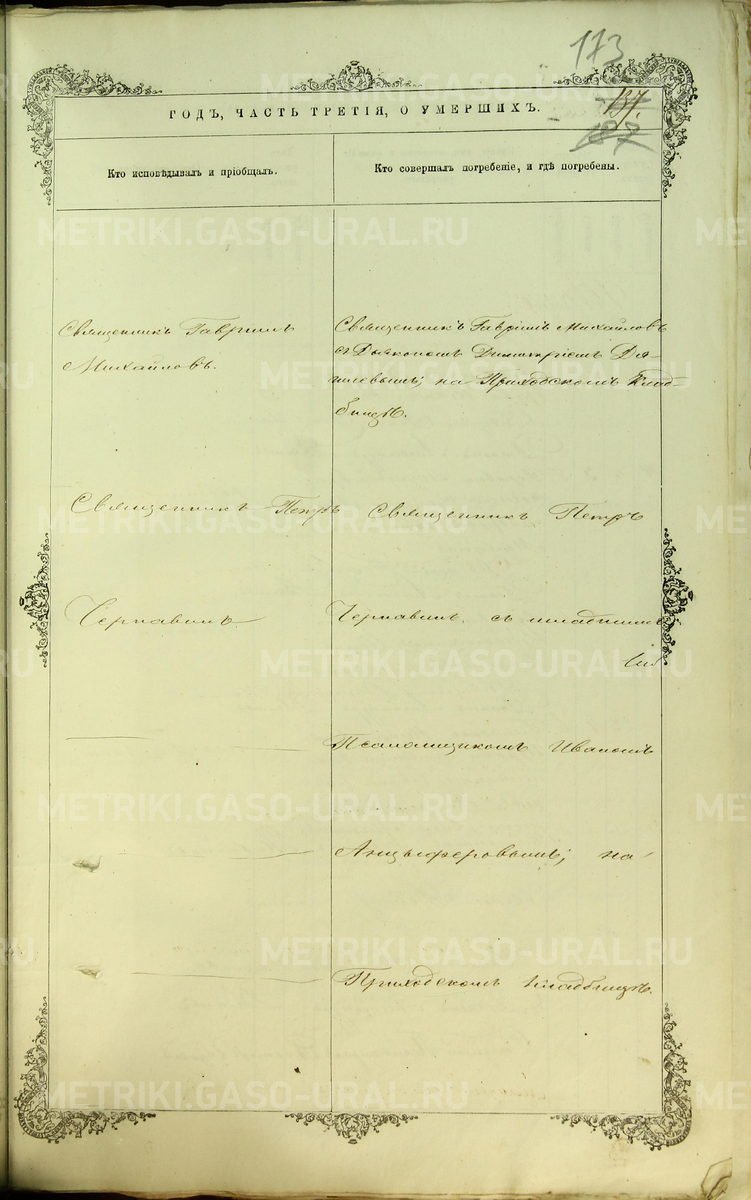 173
137.
187
ГОДЪ, ЧАСТЬ ТРЕТІЯ, О УМЕРШИХЪ.
Кто исповѣдывалъ и пріобщалъ.
Кто совершалъ погребеніе, и гдѣ погребены.
Священникъ Гавріилъ
Михайловъ.
Священникъ Гавріилъ Михайловъ
съ Діакономъ Димитріемъ
на Приходскомъ Клад-
бищѣ.
Священникъ Петръ
Чернавинъ
Священникъ Петръ
Чернавинъ съ младшимъ
Псаломщикомъ Иваномъ
Анцыферовымъ; на
Приходскомъ кладбищѣ.
METRIKI.GASO-URAL.RU